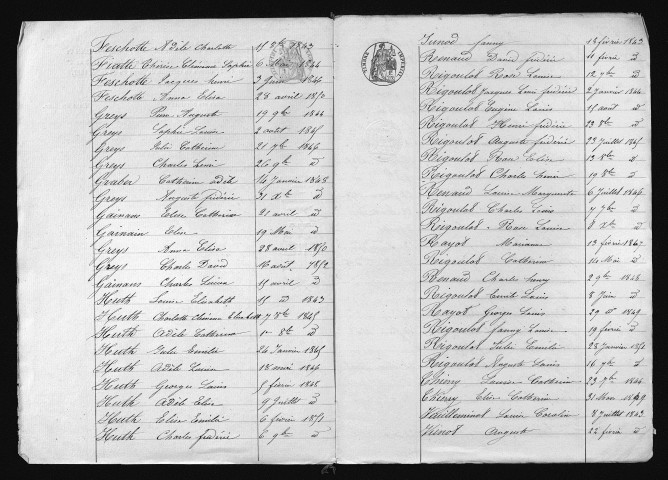 Feschotte Adèle Charlotte 15 8bre 1843
Fiatte Thérèse Clémence Sophie 6 Mai 1844
Feschotte Jacques henri 3 Juin 1844
Feschotte Anna Elisa 28 avril 1850
Greys Auguste 19 9bre 1844
Greys Sophie Louise 2 août 1845
Greys Julie Catherine 21 7bre 1846
Greys Charles Louis 26 9bre d
Graber Catherine adèle 14 Janvier 1848
Greys Auguste frédéric 31 Xbre d
Gainans Elise Catherine 21 avril d
Gainain Elise 19 Mai d
Greys Anna Elisa 28 avril 1850
Greys Charles David août 1852
Gainans Charles Louis 15 avril d
Huth Louise Elisabeth 15 d 1843
Huth Charlotte Clémence Elisabeth 7 8bre 1845
Huth Adèle Catherine 1er 8bre d
Huth Julie Emilie 26 Janvier 1845
Huth Adèle Louise 18 mai 1846
Huth Georges Louis 5 février 1848
Huth Adèle Elise 9 Juillet d
Huth Elise Emilie 6 février 1851
Huth Charles frédéric 6 9bre d
Junod fanny 13 février 1843
Renaud David frédéric 11 février d
Rigoulot Rose Louise 12 9bre d
Rigoulot Jacques Louis frédéric 2 Janvier 1844
Rigoulot Eugène Louis 15 août d
Rigoulot Henri frédéric 22 8bre d
Rigoulot Auguste frédéric 23 Juillet 1845
Rigoulot Rose Elise 13 8bre d
Rigoulot Charles henri 19 8bre d
Renaud Louise Marguerite 6 Juillet 1846
Rigoulot Charles Louis 4 7bre d
Rigoulot Rose Louise 8 Xbre d
Rayot Marianne 13 février 1847
Rigoulot Catherine 14 Mai d
Renaud Charles henry 2 9bre 1848
Rigoulot Emile Louis 8 Juin d
Rayot Georges Louis 29 d 1849
Rigoulot fanny Louise 19 février d
Rigoulot Julie Emilie 28 Janvier 1850
Rigoulot Auguste Louis 16 7bre d
Thiery Louise Catherine 23 7bre 1844
Thiery Elise Catherine 31 Mai 1849
Vuilleminot Louise Caroline 8 Juillet 1843
Auguste 22 février d